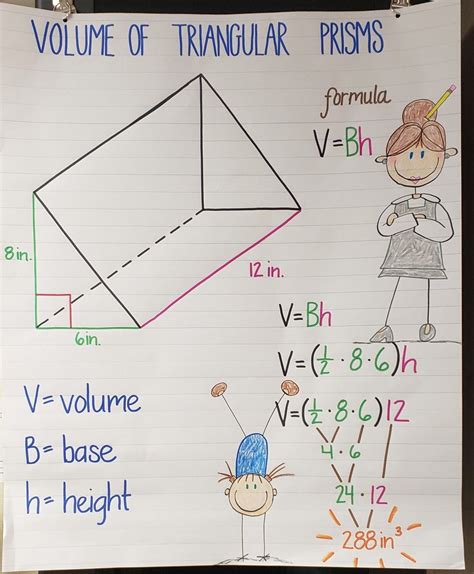 VOLUME OF TRIANGULAR PRISMS
formula
V=Bh
8 in.
6in.
12 in.
V=Bh
V=(½·8·6)h
V=(½·8·6)12
4·6
24·12
288in³
V=volume
B= base
h= height